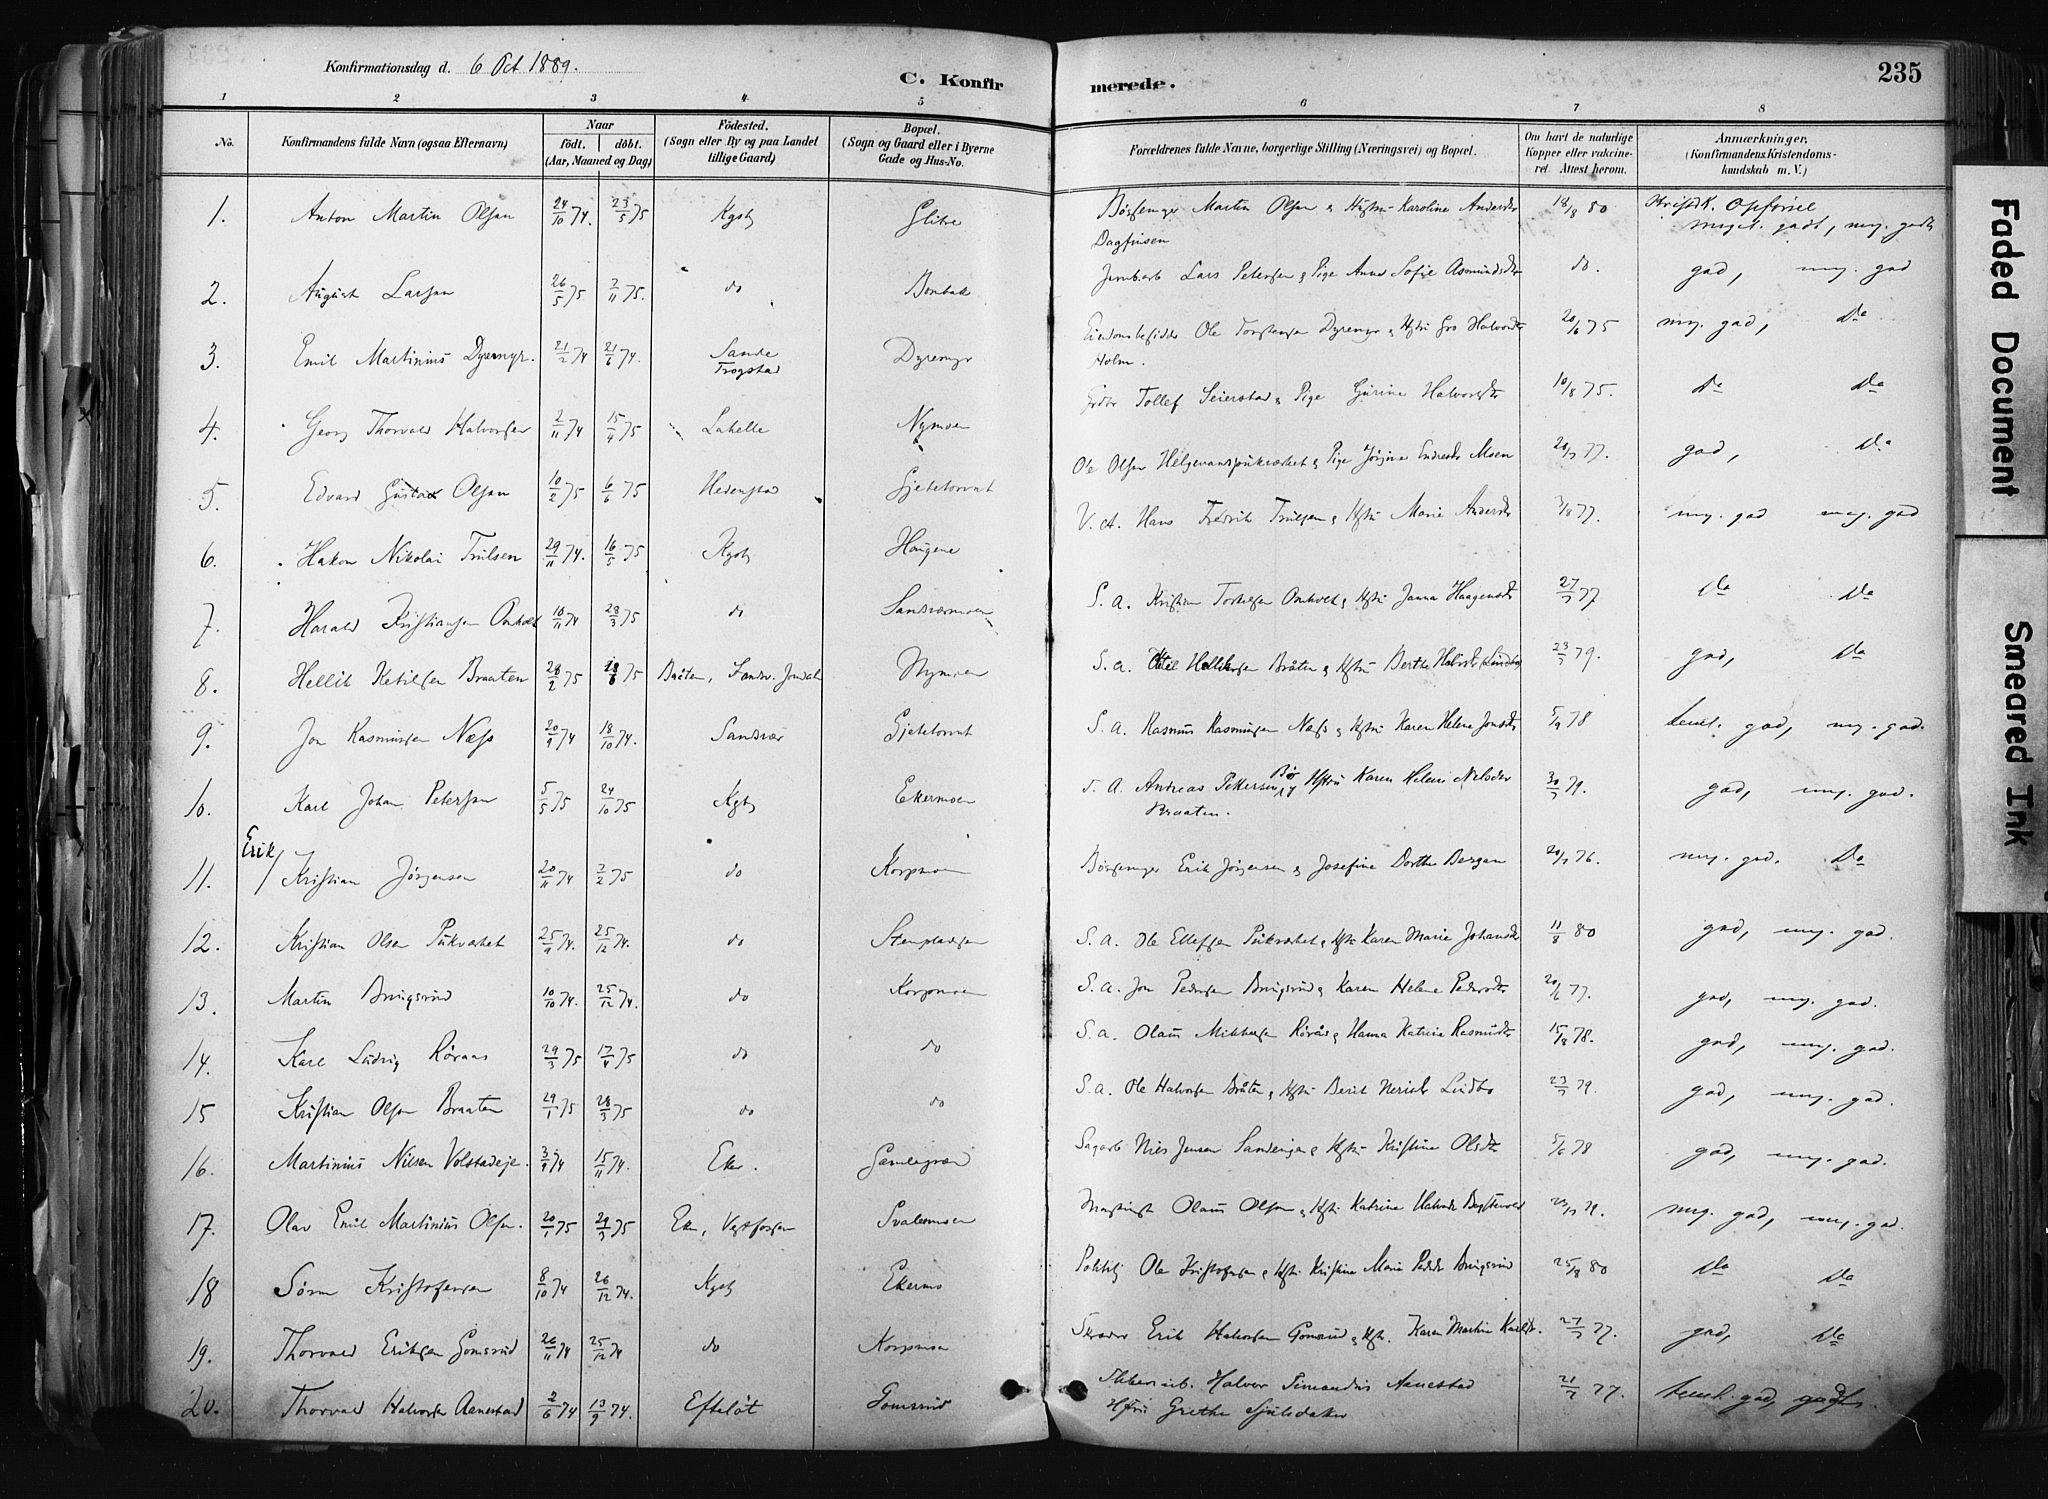 Konfirmationsdag d. 6 Oct 1889.
C. Konfirmerede.
235
1 2 3 4 5 6 7 8
No.
Konfirmandens fulde Navn (ogsaa Efternavn)
Naar
födt. döbt.
(Aar, Maaned og Dag)
Födested.
(Sogn eller By og paa Landet
tillige Gaard)
Bopæl.
(Sogn og Gaard eller i Byerne
Gade og Hus-No.
Forældrenes fulde Navne, borgerlige Stilling (Næringsvei) og Bopæl.
Om havt de naturlige
Kopper eller vakcine-
ret. Attest herom.
Anmærkninger.
(Konfirmandens Kristendoms-
kundskab m. V.)
1. Anton Martin Olsen 24/10 74. 23/5 75 Kgsb Glitre Martin Olsen & Hustru Karoline Andersdr 18/8 80 Opförsel
Dagfinsen meget godt, meg. godt
2. August Larsen 26/5 75 7/11 75. do Lars Petersen & Pige Anne Sofie Asmundsdr do. god, meg. god
3. Emil Martinius Dyrmyr. 21/2 74 21/6 74. Sande Dyremyr Ole Torstensen Dyremyr & Hstr Gro Halvorsdr 20/6 75 meg. god, Do
Trogstad Holm.
4. Georg Thorvald Halvorsen 2/11 74 15/4 75 Labelle Nymoen Tollef Seierstad & Pige Gurine Halvorsdr 10/8 75. Do Do
5. Edvard Gustav Olsen 10/2 75 6/6 75 Hedenstad Gjetetorvet Ole Olsen Helgevanspukverket & Pige Jörgine Endresdr Moen 20/7 77. god, Do
6. Hakon Nikolai Trulsen 29/11 74. 16/5 75 Kgsb Haugene V. A. Hans Fredrik Trulsen & Hstr Marie Andersdr 3/8 77. meg. god meg. god
7. Harald Kristiansen Omholt 10/11 74 28/3 75 do Sandsværmoen S. A. Kristian Torkelsen Omholt & Hstr Janna Haagensdr 27/7 77 Do Do
8. Hellik Ketilsen Braaten 28/2 75 Bråten, Sandsv. Jondal Nymoen S. A. Ketil Helliksen Bråten & Hstr Berthe Halvorsdr Lindbo 23/7 79. god, Do
9. Jon Rasmussen Næss 20/9 74 18/10 74. Sandsvær Gjetetorvet S. A. Rasmus Rasmussen Næss & Hstr Karen Helene Jonsdr 5/9 78 temel. god, meg. god.
10. Karl Johan Petersen 5/5 75 24/10 75 Kgsb Ekermoen S. A. Andreas Pettersen Bö & Hstru Karen Helene Nilsdr 30/7 79. god, meg. god.
Braaten.
11. Erik / Kristian Jörgensen 20/11 74 7/2 75 do Korpmoen Bösseniger Erik Jörgensen & Josefine Dorthe Bergan 20/7 76. meg. god. Do
12. Kristian Olsen Pukverket 25/9 74. 25/12 74. do Stenpladsen S. A. Ole Ellefsen Pukverket & Hstr Karen Marie Johansdr 11/8 80 god, meg. god.
13. Martin Bingsrud 10/10 74. 25/12 74. do Korpmoen S. A. Jon Pedersen Bingsrud & Karen Helene Pedersdr 20/6 77. god, meg. god.
14. Karl Ludvig Röraas 29/3 75 17/4 75 do do S. A. Olaus Mikkelsen Rörås & Hanna Katrine Rasmusdr 15/8 78. god, meg. god.
15 Kristian Olsen Braaten 29/1 75 28/3 75 do do S. A. Ole Halvorsen Bråten & Hstr Berit Lindbo 23/7 79. god, meg. god.
16. Martinius Nilsen Volstadeje. 3/9 74 15/11 74. Eker. Gamlegrænd Sagarb Nils Jensen Sandengen & Hstr Kristine Olsdr 5/6 78 god, meg. god.
17. Olav Emil Martinius Olsen. 20/1 75 29/3 75 Eker, Vestfossen Svalemoen Olaus Olsen & Hstr Katrine meg. god, meg. god.
18 Sören Kristofersen 8/10 74 26/12 74. Kgsb Ekermo Ole Kristofersen & Hstr Kristine Marie Pedersdr Bingsrud 25/8 80 Do Do
19. Thorvald Eriksen Gomsrud 26/11 74 25/12 74 do Korpmoen Skræder Erik Halvorsen Gomsrud & Hstr. Karen Martine Karlsdr. 27/7 77. god, Do
20. Thorvald Halvorsen Aanestad 2/6 74 13/9 74. Efteløt Gomsrud Halvor Aanestad 21/7 77. temel. god, godt.
Hstru Grethe
Faded Document
Smeared Ink